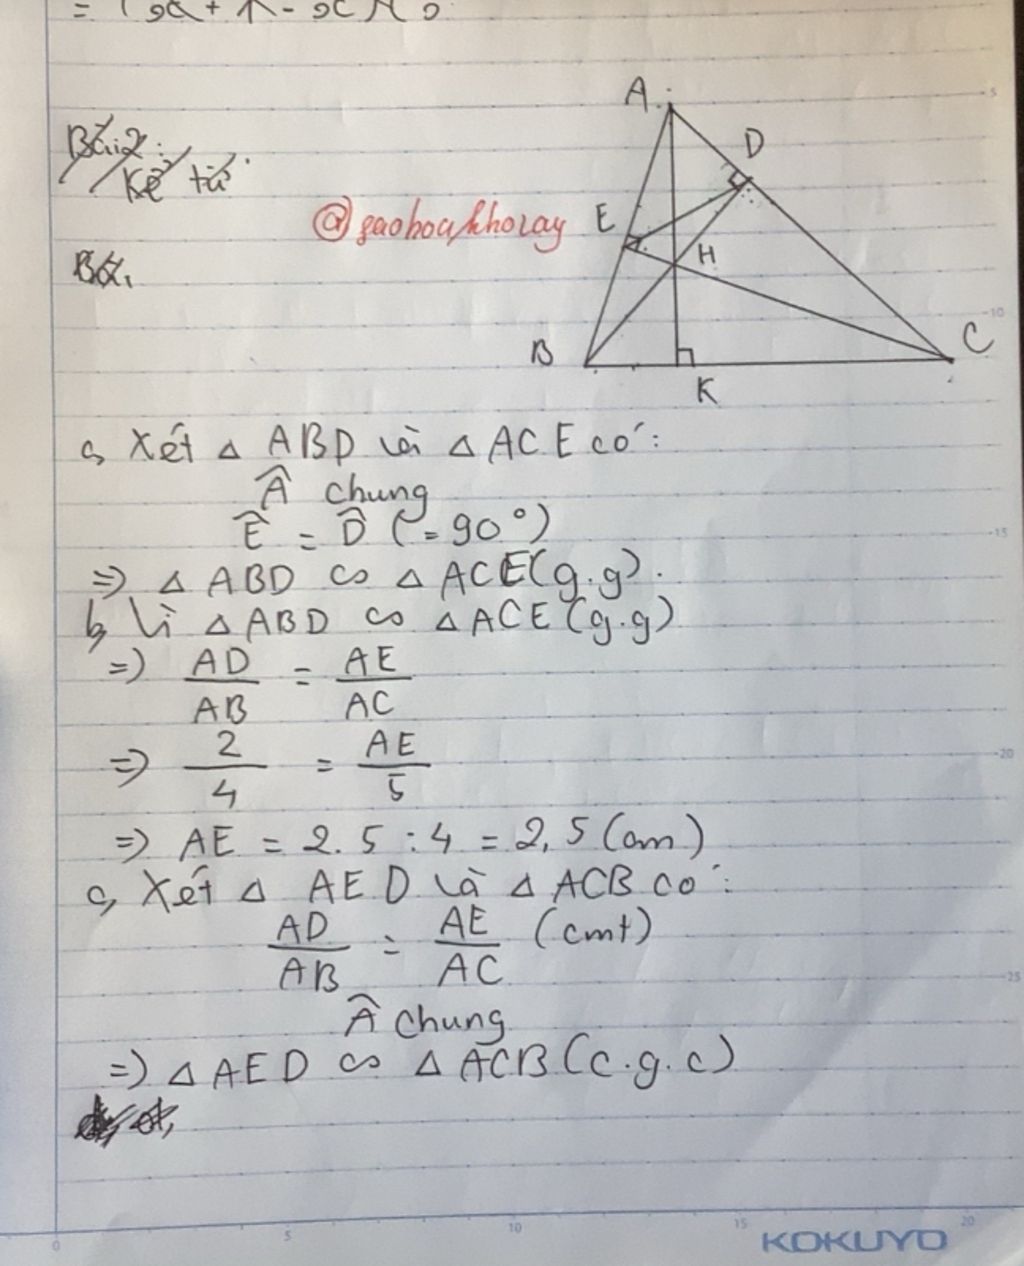 Bài 2:
Kẻ từ
@saohoakhoray
Bài
A
D
E
H
B
C
K
a, Xét △ ABD và △ ACE có:
Â chung
Ê = D̂ (= 90°)
=> △ ABD ∽ △ ACE (g.g).
b, Vì △ ABD ∽ △ ACE (g.g)
=> AD/AB = AE/AC
=> 2/4 = AE/5
=> AE = 2.5 : 4 = 2,5 (cm)
c, Xét △ AED và △ ACB có:
AD/AB = AE/AC (cmt)
Â chung
=> △ AED ∽ △ ACB (c.g.c)
5
10
15
20
25
0
5
10
15
20
KOKUYO